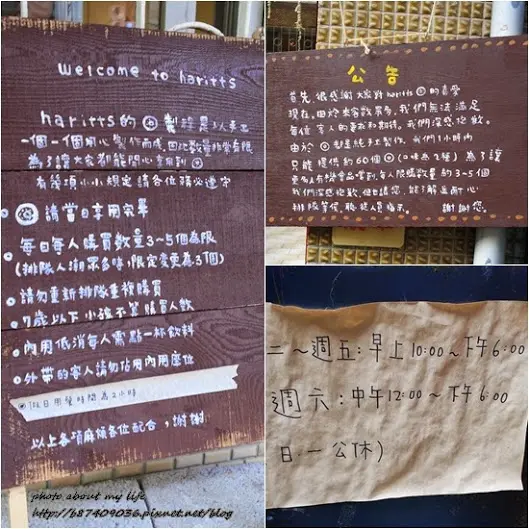 welcome to haritts
haritts的◎製程是以手工
一個一個用心製作而成,因此數量非常有限
為了讓大家都能開心拿到◎
有幾項小小規定請各位務必遵守
◎請當日享用完畢
每日每人購買數量3~5個為限
(排隊人潮眾多時,限定變更為3個)
請勿重新排隊重複購買
7歲以下小孩不算購買人數
內用低消每人需點一杯飲料
外帶的客人請勿佔用內用座位
假日用餐時間為2小時
以上各項麻煩各位配合,謝謝
photo about my life
http://b87409036.pixnet.net/blog
公告
首先,很感謝大家對haritts◎的喜愛
現在,由於來客數眾多,我們無法滿足
每位客人的要求和期待,我們深感抱歉。
由於◎都是純手工製作,我們1小時內
只能提供約60個◎(口味為2種)為了讓
更多人有機會品嚐到,每人限購數量約3~5個
我們深感抱歉,但也請您,能了解且耐心
排隊等候,聽從人員指示。 謝謝您。
二~週五:早上10:00~下午6:00
週六:中午12:00~下午6:00
日.一公休)